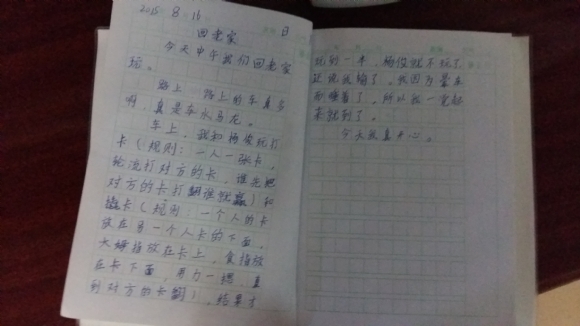 2015 8. 16
日
回老家
今天中午我们回老家
玩。
路上,路上的车真多
啊,真是车水马龙。
车上,我和杨俊玩打
卡(规则:一人一张卡,
轮流打对方的卡,谁先把
对方的卡打翻谁就赢)和
撬卡(规则:一个人的卡
放在另一个人卡的下面,
大姆指放在卡上,食指放
在卡下面,用力一撬,直
到对方的卡翻),结果才
玩到一半,杨俊就不玩了
还说我输了。我因为晕车
而睡着了,所以我一觉起
来就到了。
今天我真开心。